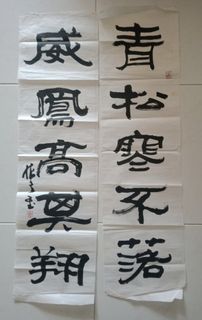 青松寒不落
威鳳高其翔